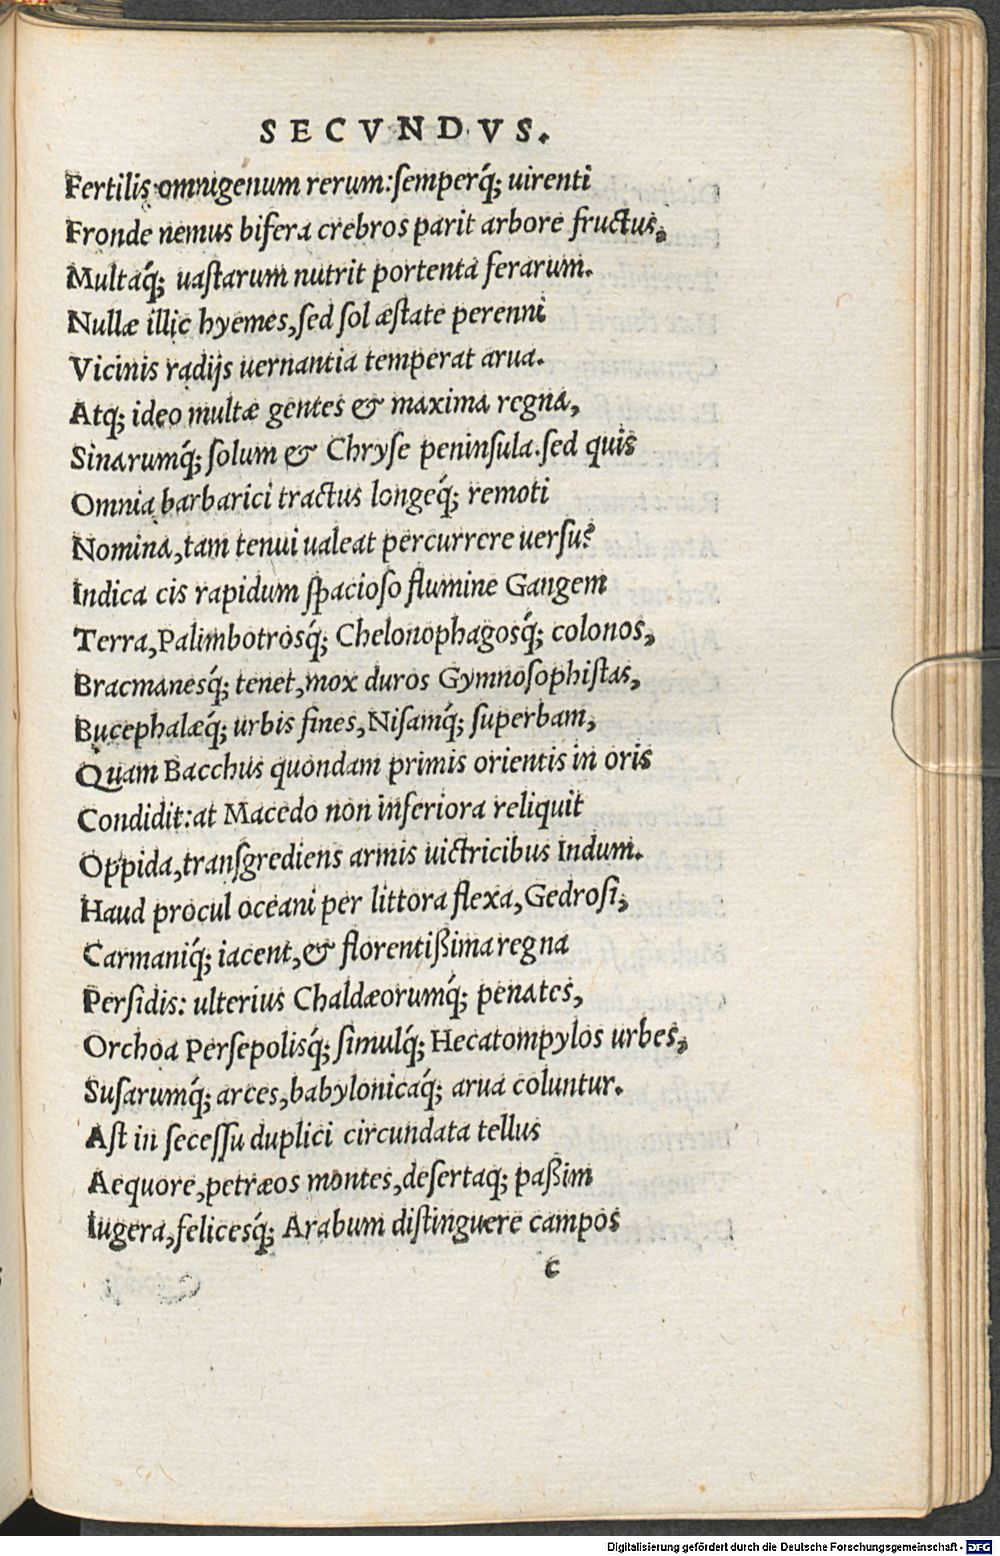 SECVNDVS.
Fertilis omnigenum rerum: semperq́; uirenti
Fronde nemus bifera crebros parit arbore fructus,
Multaq́; uastarum nutrit portenta ferarum.
Nullæ illic hyemes, sed sol æstate perenni
Vicinis radijs uernantia temperat arua.
Atq; ideo multæ gentes & maxima regna,
Sinarumq́; solum & Chryse peninsula. sed quis
Omnia barbarici tractus longeq́; remoti
Nomina, tam tenui ualeat percurrere uersu?
Indica cis rapidum spacioso flumine Gangem
Terra, Palimbotrosq́; Chelonophagosq́; colonos,
Bracmanesq́; tenet, mox duros Gymnosophistas,
Bucephalæq́; urbis fines, Nisamq́; superbam,
Quam Bacchus quondam primis orientis in oris
Condidit: at Macedo non inferiora reliquit
Oppida, transgrediens armis uictricibus Indum.
Haud procul oceani per littora flexa, Gedrosi,
Carmaniq́; iacent, & florentißima regna
Persidis: ulterius Chaldæorumq́; penates,
Orchoa Persepolisq́; simulq́; Hecatompylos urbes,
Susarumq́; arces, babylonicaq́; arua coluntur.
Ast in secessu duplici circundata tellus
Aequore, petræos montes, desertaq; paßim
Iugera, felicesq́; Arabum distinguere campos
c
Digitalisierung gefördert durch die Deutsche Forschungsgemeinschaft - DFG